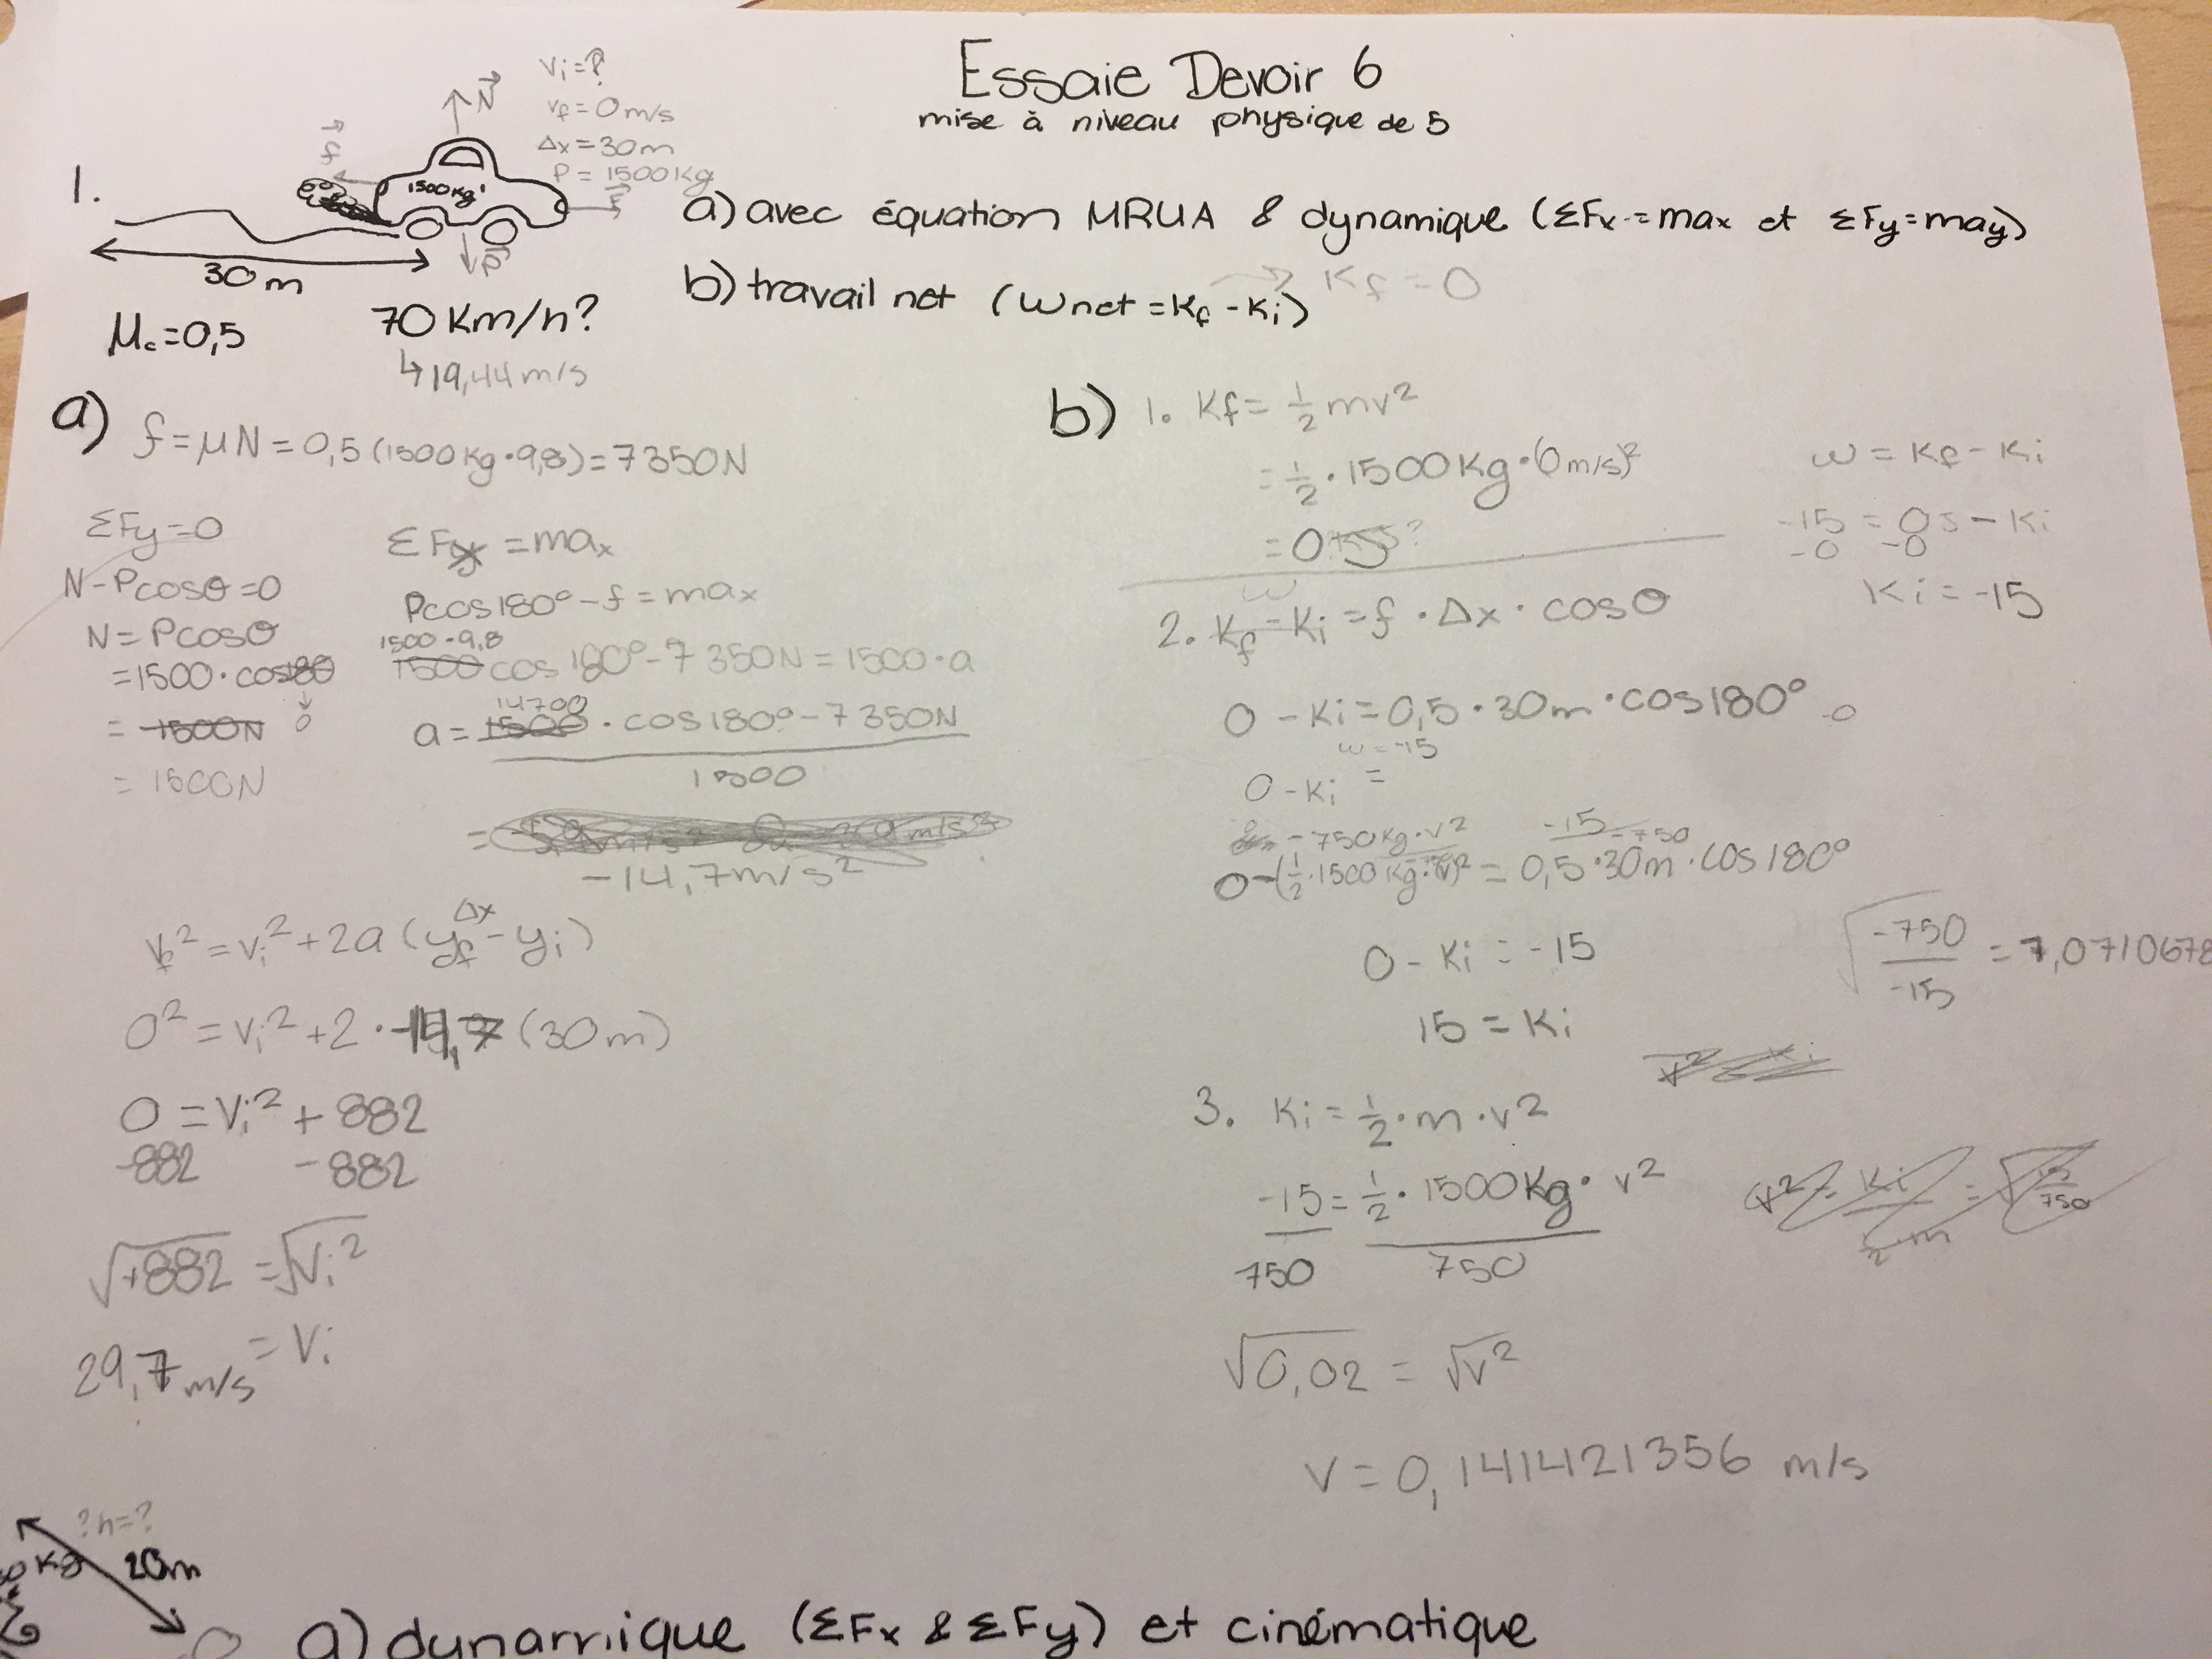 Essaie Devoir 6
mise à niveau physique de 5
Vi=?
vf = 0m/s
Δx = 30m
P = 1500Kg
N
f
F
P
1500kg
1.
30m
μc=0,5
70 Km/h?
↳19,44m/s
a) avec équation MRUA & dynamique (ΣFx = max et ΣFy=may)
b) travail net (Wnet = Kf - Ki) → Kf = 0
a) f = μN = 0,5 (1500kg•9,8) = 7350N
ΣFy=0
N-Pcosθ=0
N= Pcosθ
=1500•cos180
↓
0
= -1500N
= 1500N
ΣFx = max
Pcos180° - f = max
1500•9,8
1500 cos 180° - 7350N = 1500•a
14700
a = 1500 • cos180° - 7350N
1500
-14,7m/s²
Δx
vf² = vi² + 2a (yf - yi)
0² = vi² + 2 • -14,7 (30m)
0 = Vi² + 882
-882 -882
√+882 = √Vi²
29,7 m/s = Vi
b) 1. Kf = 1/2 mv²
= 1/2 • 1500Kg • (0m/s)²
= 0
W
2. Kf - Ki = f • Δx • cosθ
0 - Ki = 0,5 • 30m • cos180°
w = -15
0 - Ki =
-750kg•v²
-15
-750
0-(1/2•1500kg•v)² = 0,5•30m•cos180°
0 - Ki = -15
15 = Ki
3. Ki = 1/2 • m • v²
-15 = 1/2 • 1500Kg • v²
750 750
√0,02 = √v²
V = 0,141421356 m/s
w = Kf - Ki
-15 = 0J - Ki
-0 -0
Ki = -15
√-750/-15 = 7,0710678
?h=?
20m
a) dynamique (ΣFx & ΣFy) et cinématique